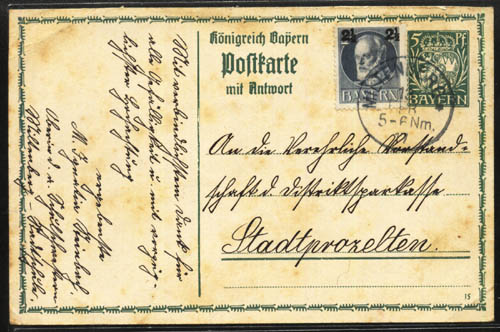 Königreich Bayern
Postkarte
mit Antwort
2½ 2½
BAYERN
5 Pf
BAYERN
5-6Nm.
An die Verehrliche Vorstand-
schaft d. Distriktssparkasse
Stadtprozelten.
Mit verbindlichstem Dank für
alle Gefälligkeit u. mit vorzüg-
lichster Hochachtung
ergebenste
M. Ignatia
Oberin d.
Miltenberg
15